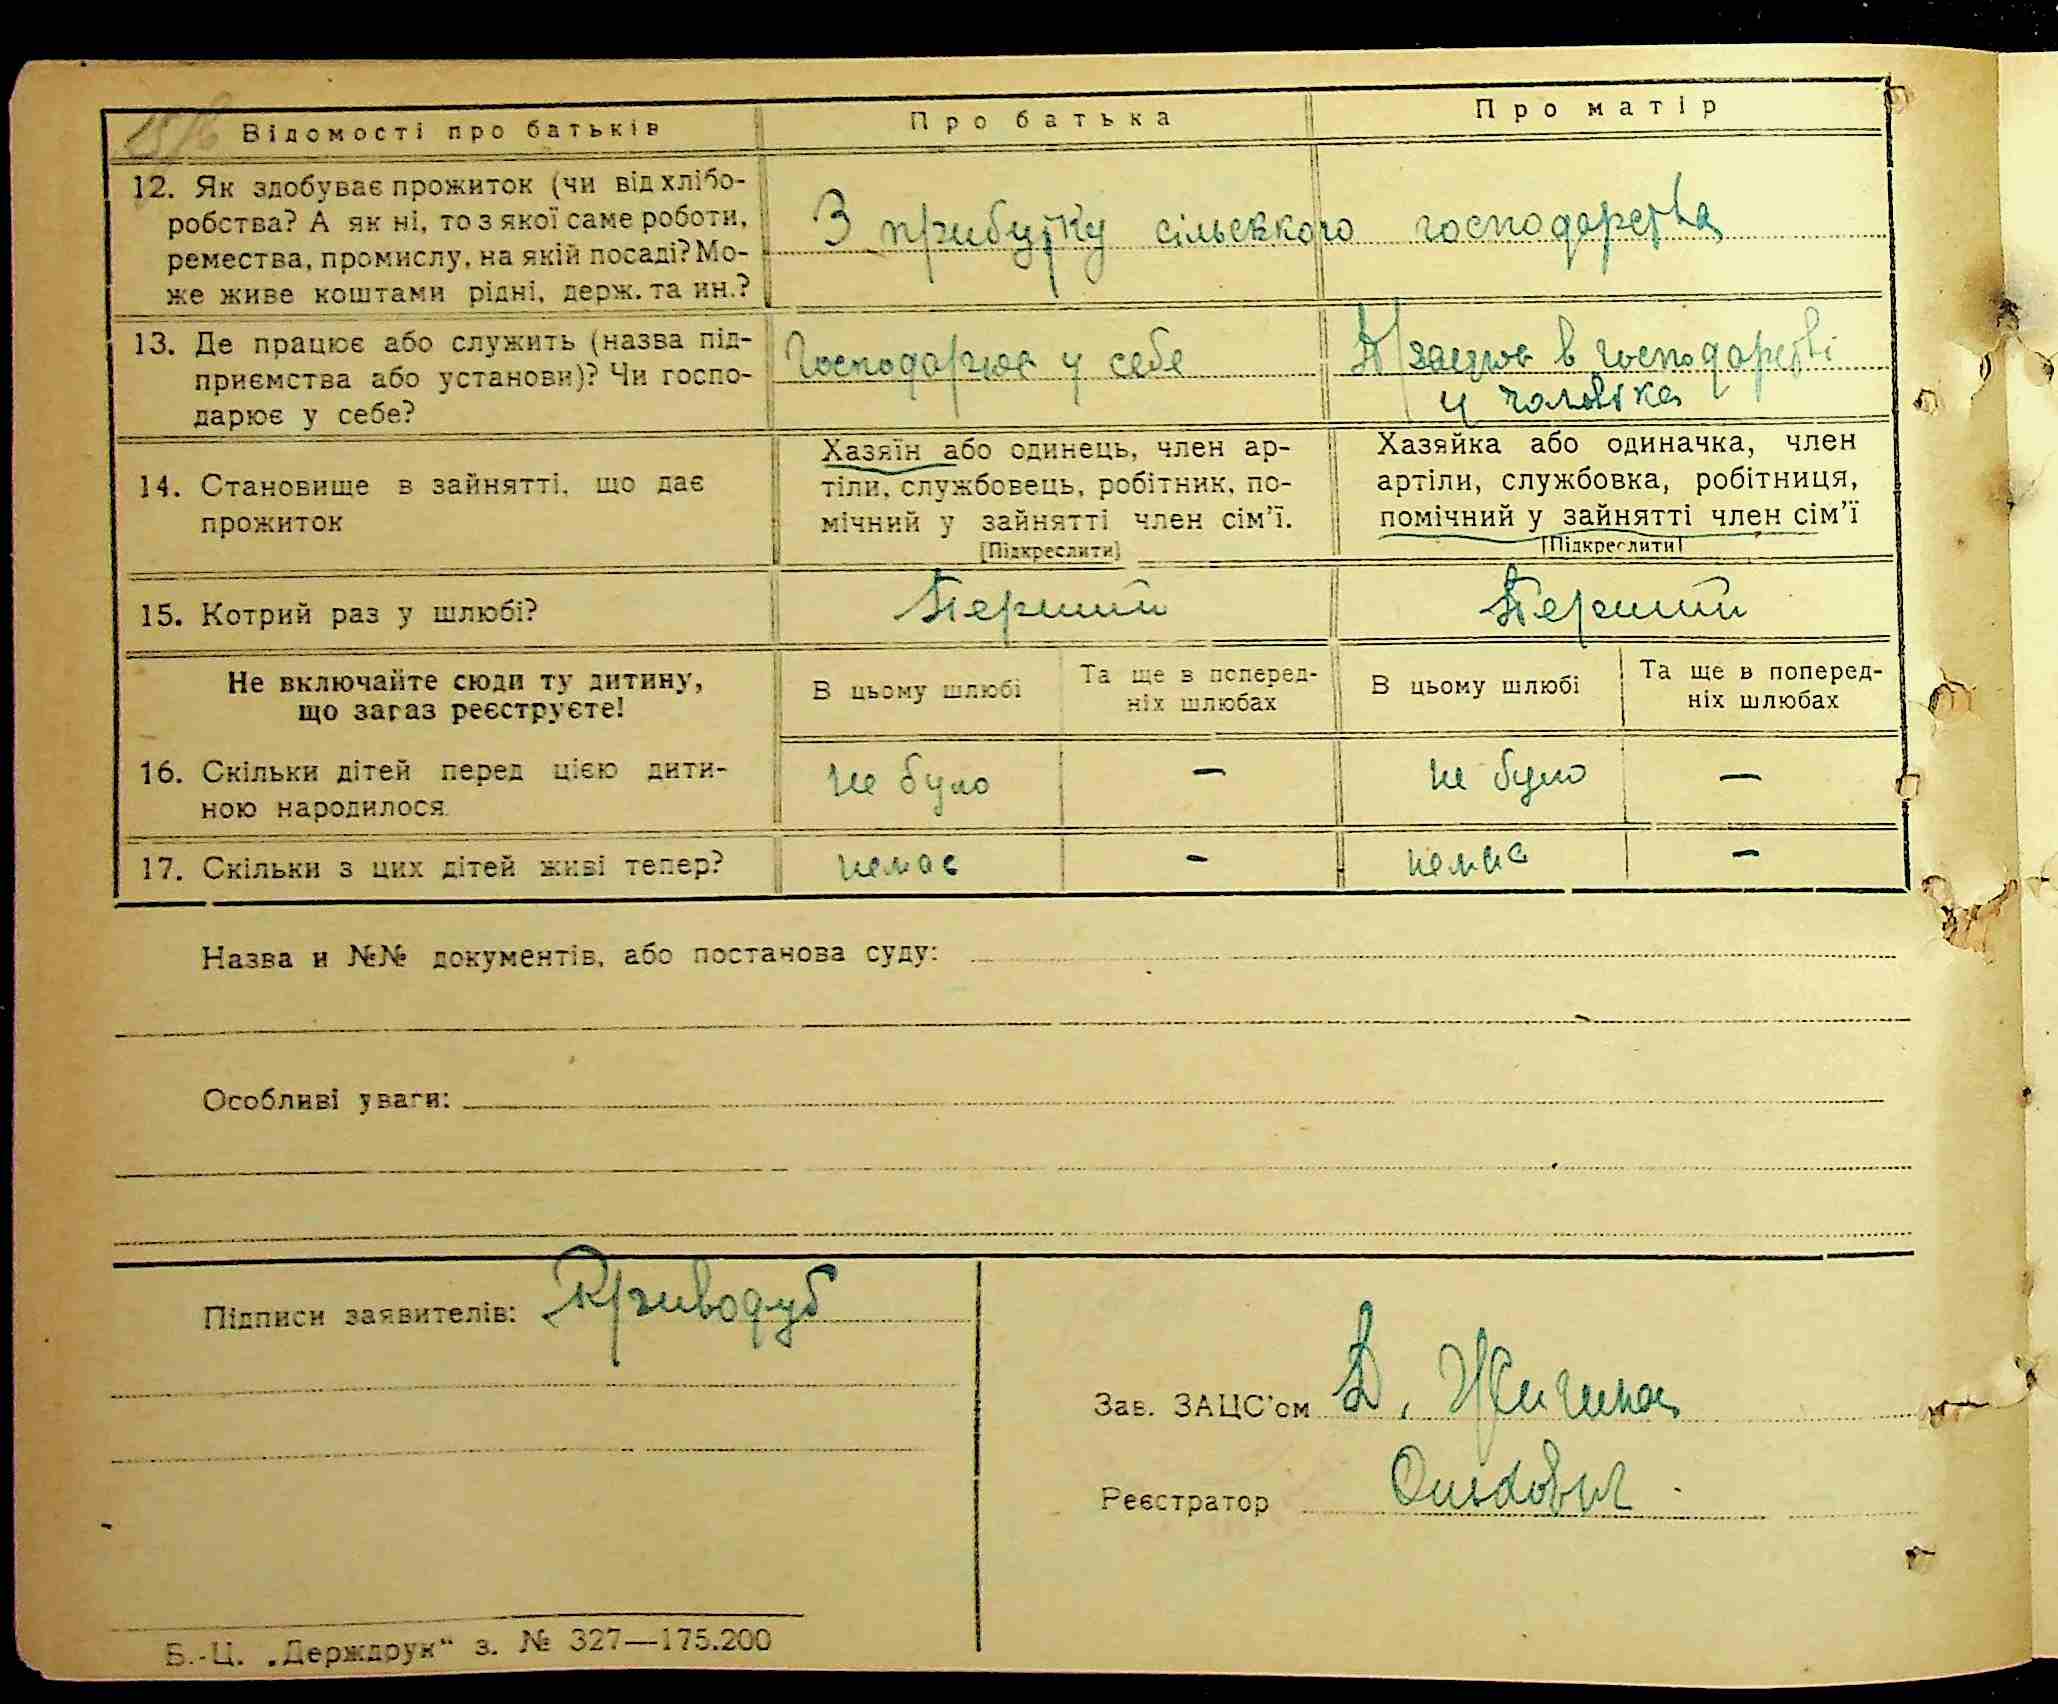 Відомості про батьків
Про батька
Про матір
12. Як здобуває прожиток (чи від хлібо-
робства? А як ні, то з якої саме роботи,
ремества, промислу, на якій посаді? Мо-
же живе коштами рідні, держ. та ин.?
З прибутку сільского господарства
13. Де працює або служить (назва під-
приємства або установи)? Чи госпо-
дарює у себе?
Господарює у себе
Працює в господарстві
у чоловіка
14. Становище в зайнятті, що дає
прожиток
Хазяїн або одинець, член ар-
тіли, службовець, робітник, по-
мічний у зайнятті член сім'ї.
[Підкреслити]
Хазяйка або одиначка, член
артіли, службовка, робітниця,
помічний у зайнятті член сім'ї
[Підкреслити]
15. Котрий раз у шлюбі?
Перший
Перший
Не включайте сюди ту дитину,
що зараз реєструєте!
В цьому шлюбі
Та ще в поперед-
ніх шлюбах
В цьому шлюбі
Та ще в поперед-
ніх шлюбах
16. Скільки дітей перед цією дити-
ною народилося
не було
—
не було
—
17. Скільки з цих дітей живі тепер?
немає
-
немає
-
Назва и №№ документів, або постанова суду:
Особливі уваги:
Підписи заявителів: Криводуб
Зав. ЗАЦС'ом
Реєстратор
Б.-Ц. „Держдрук“ з. № 327—175.200